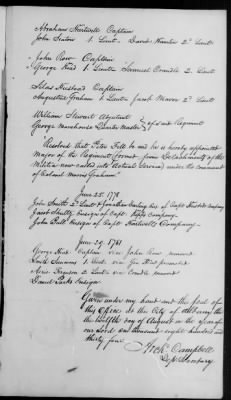 Abraham Hartwell Captain
John Seaton 1. Lieut. David Hunter 2d Lieut
John Row Captain
George Head 1 Lieut Samuel Crandle 2. Lieut
Silas Husted Captain
Augustine Graham 1 Lieut Jacob 2d Lieut
William Stewart Adjutant
George Morehouse Quarter Master of said Regiment
"Resolved that Peter Fell be and he is hereby appointed
Major of the Regiment formed from Detachments of the
Militia now called into actual Service under the command
of Colonel Morris Graham."
June 25th 1778
John Smith 2d Lieut & Jonathan Ensign of Capt Husted's Company
Jacob Ensign of Capt Company
John Bull Ensign of Capt Hartwells Company
June 29. 1781
George Head Captain vice John Row
1 Lieut. vice Geo Head promoted
2d Lieut vice Crandle
Ensign
Given under my hand and the seal of
this Office at the City of Albany the
the twelfth day of August in the year of
our Lord one thousand eight hundred and
thirty four
Archd Campbell
Dep Secretary